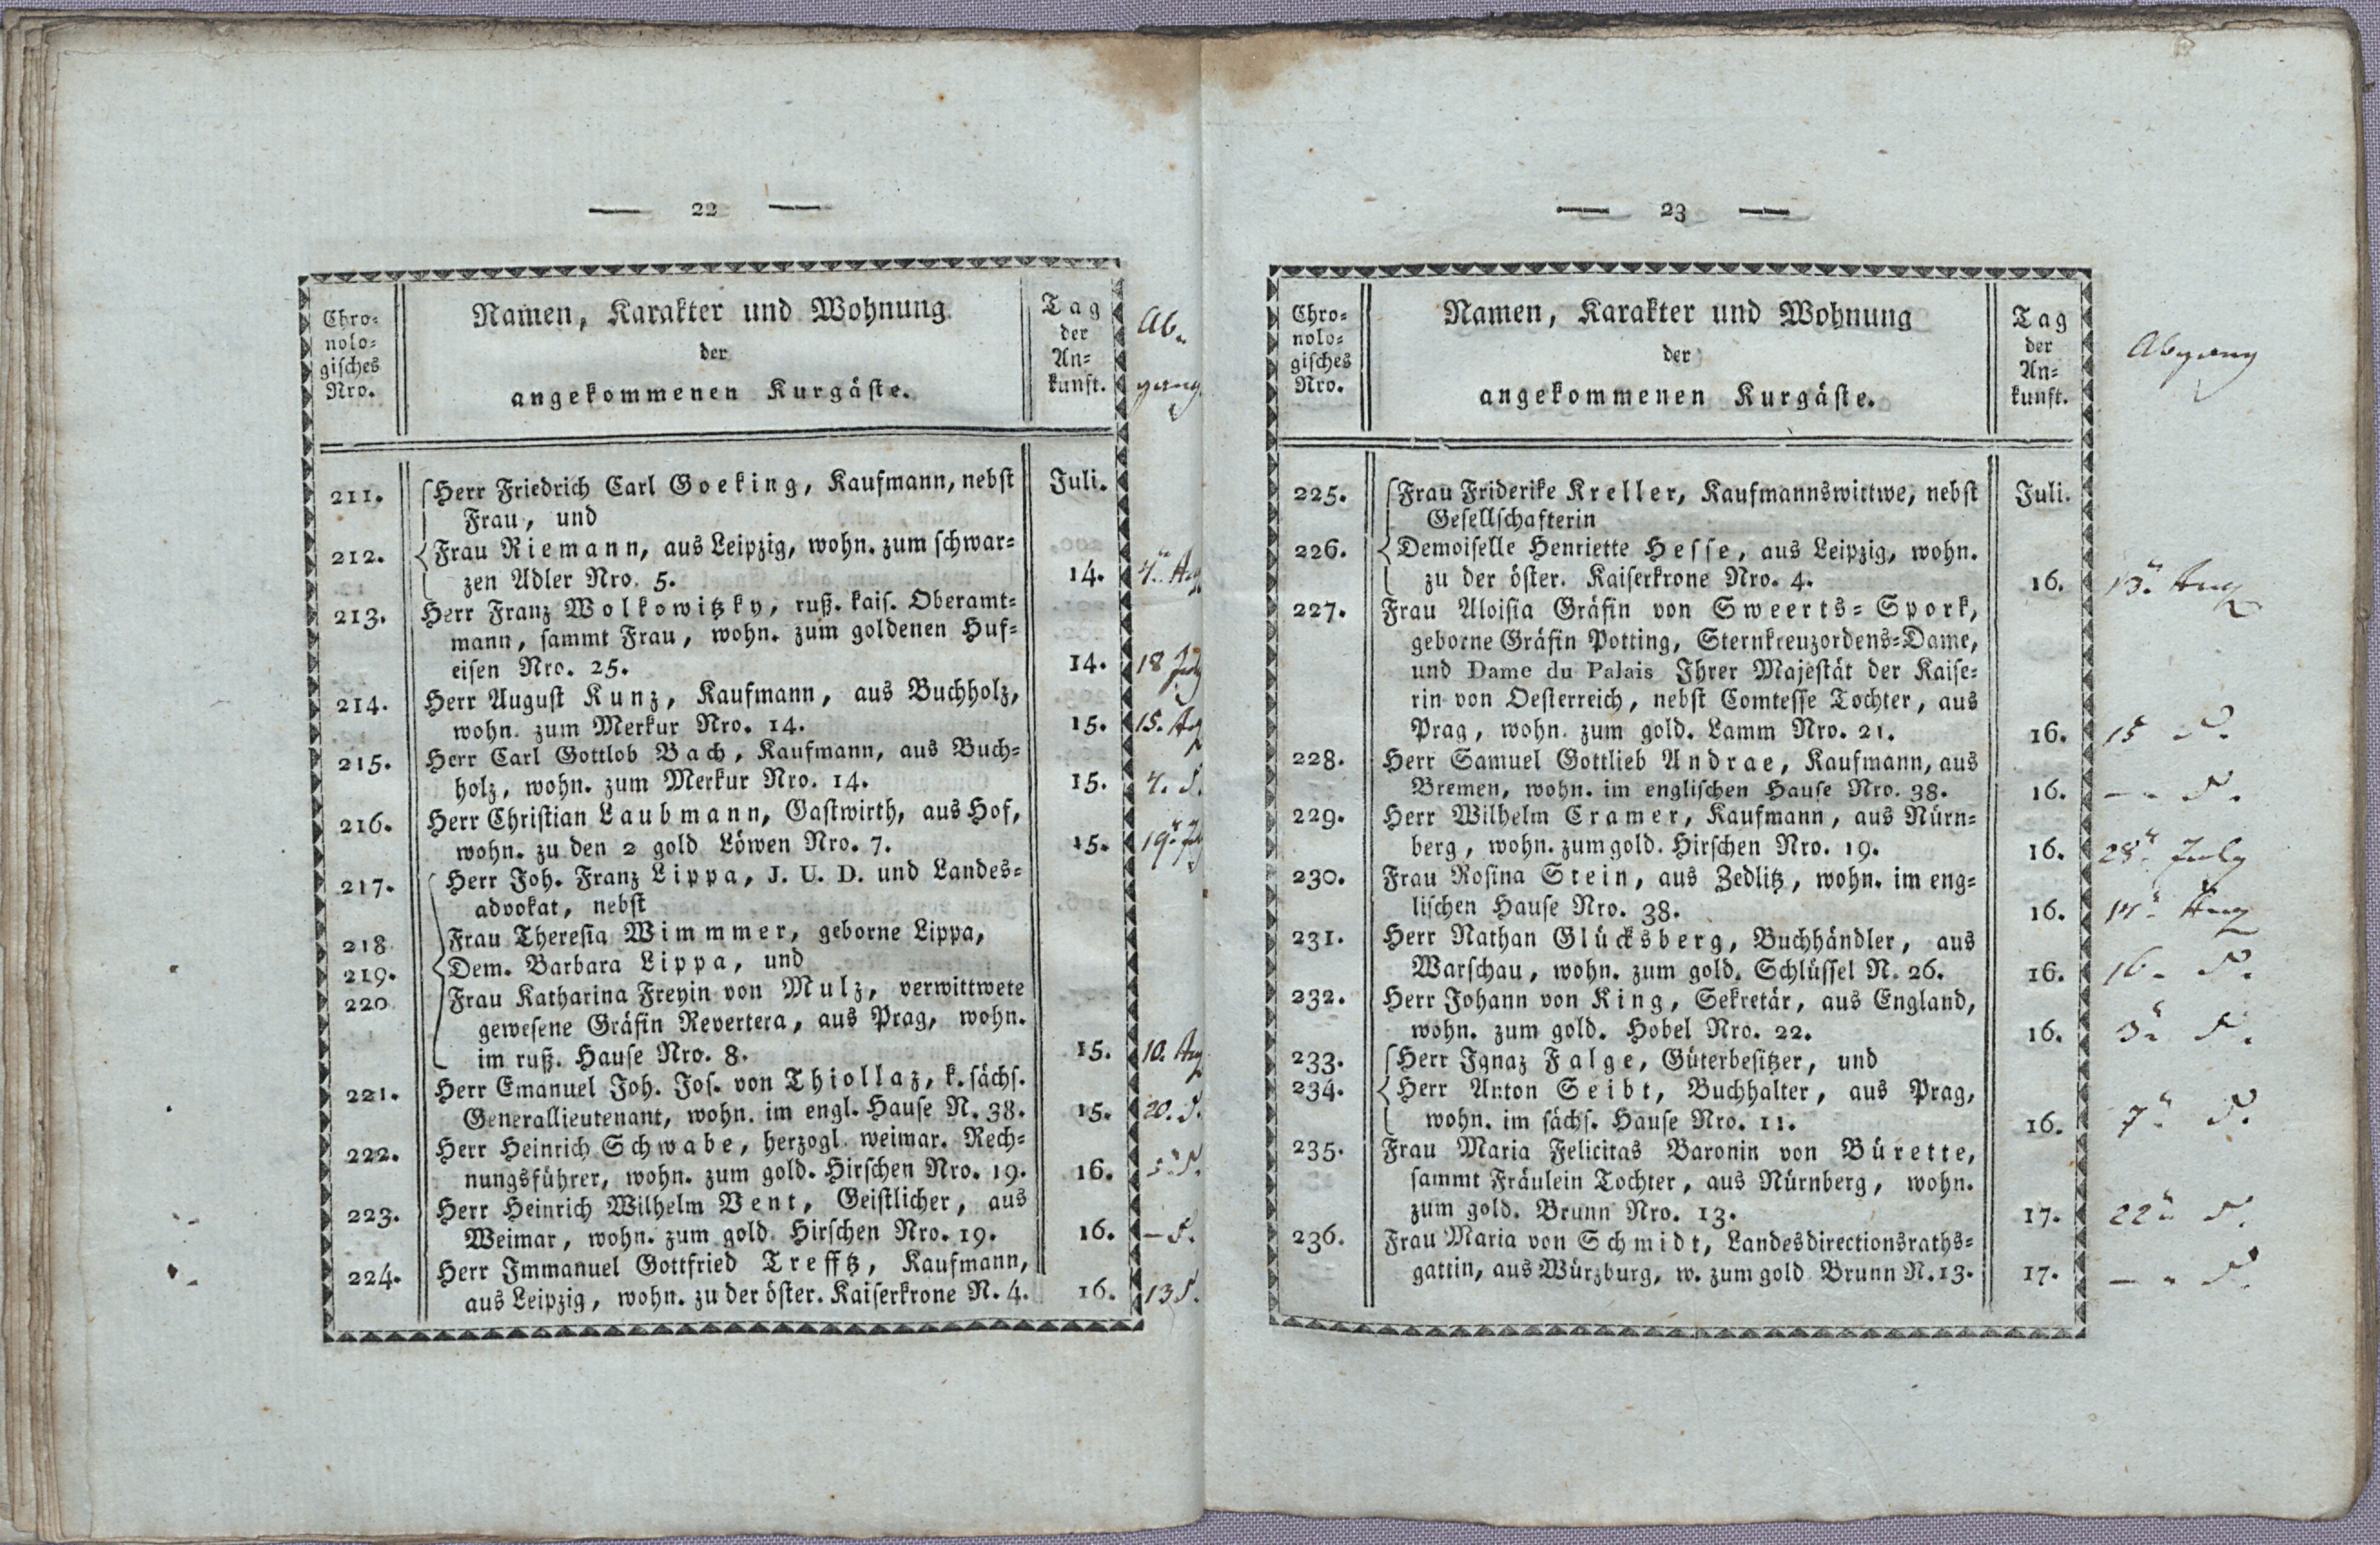 — 22 —
Chro-
nolo-
gisches
Nro.
Namen, Karakter und Wohnung
der
angekommenen Kurgäste.
Tag
der
An-
kunft.
Ab-
gang
211. Herr Friedrich Carl Goeking, Kaufmann, nebst Juli.
Frau, und
212. Frau Riemann, aus Leipzig, wohn. zum schwar-
zen Adler Nro. 5. 14. 4. Aug
213. Herr Franz Wolkowitzky, ruß. kais. Oberamt-
mann, sammt Frau, wohn. zum goldenen Huf-
eisen Nro. 25. 14. 18 July
214. Herr August Kunz, Kaufmann, aus Buchholz,
wohn. zum Merkur Nro. 14. 15. 15. Aug
215. Herr Carl Gottlob Bach, Kaufmann, aus Buch-
holz, wohn. zum Merkur Nro. 14. 15. 4. d.
216. Herr Christian Laubmann, Gastwirth, aus Hof,
wohn. zu den 2 gold Löwen Nro. 7. 15. 19. July
217. Herr Joh. Franz Lippa, J. U. D. und Landes-
advokat, nebst
218 Frau Theresia Wimmmer, geborne Lippa,
219. Dem. Barbara Lippa, und
220 Frau Katharina Freyin von Mulz, verwittwete
gewesene Gräfin Revertera, aus Prag, wohn.
im ruß. Hause Nro. 8. 15. 10. Aug
221. Herr Emanuel Joh. Jos. von Thiollaz, k. sächs.
Generallieutenant, wohn. im engl. Hause N. 38. 15. 20. d.
222. Herr Heinrich Schwabe, herzogl. weimar. Rech-
nungsführer, wohn. zum gold. Hirschen Nro. 19. 16. d.
223. Herr Heinrich Wilhelm Vent, Geistlicher, aus
Weimar, wohn. zum gold. Hirschen Nro. 19. 16. — d.
224. Herr Immanuel Gottfried Trefftz, Kaufmann,
aus Leipzig, wohn. zu der öster. Kaiserkrone N. 4. 16. 13 d.
— 23 —
Chro-
nolo-
gisches
Nro.
Namen, Karakter und Wohnung
der
angekommenen Kurgäste.
Tag
der
An-
kunft.
Abgang
225. Frau Friderike Kreller, Kaufmannswittwe, nebst Juli.
Gesellschafterin
226. Demoiselle Henriette Hesse, aus Leipzig, wohn.
zu der öster. Kaiserkrone Nro. 4. 16. 13. Aug
227. Frau Aloisia Gräfin von Sweerts-Spork,
geborne Gräfin Potting, Sternkreuzordens-Dame,
und Dame du Palais Ihrer Majestät der Kaise-
rin von Oesterreich, nebst Comtesse Tochter, aus
Prag, wohn. zum gold. Lamm Nro. 21. 16. 15 d.
228. Herr Samuel Gottlieb Andrae, Kaufmann, aus
Bremen, wohn. im englischen Hause Nro. 38. 16. — d.
229. Herr Wilhelm Cramer, Kaufmann, aus Nürn-
berg, wohn. zum gold. Hirschen Nro. 19. 16. 28. July
230. Frau Rosina Stein, aus Zedlitz, wohn. im eng-
lischen Hause Nro. 38. 16. 14. Aug
231. Herr Nathan Glücksberg, Buchhändler, aus
Warschau, wohn. zum gold. Schlüssel N. 26. 16. 16. d.
232. Herr Johann von King, Sekretär, aus England,
wohn. zum gold. Hobel Nro. 22. 16. 3. d.
233. Herr Ignaz Falge, Güterbesitzer, und
234. Herr Anton Seibt, Buchhalter, aus Prag,
wohn. im sächs. Hause Nro. 11. 16. 7. d.
235. Frau Maria Felicitas Baronin von Bürette,
sammt Fräulein Tochter, aus Nürnberg, wohn.
zum gold. Brunn Nro. 13. 17. 22. d.
236. Frau Maria von Schmidt, Landesdirectionsraths-
gattin, aus Würzburg, w. zum gold Brunn N. 13. 17. — d.